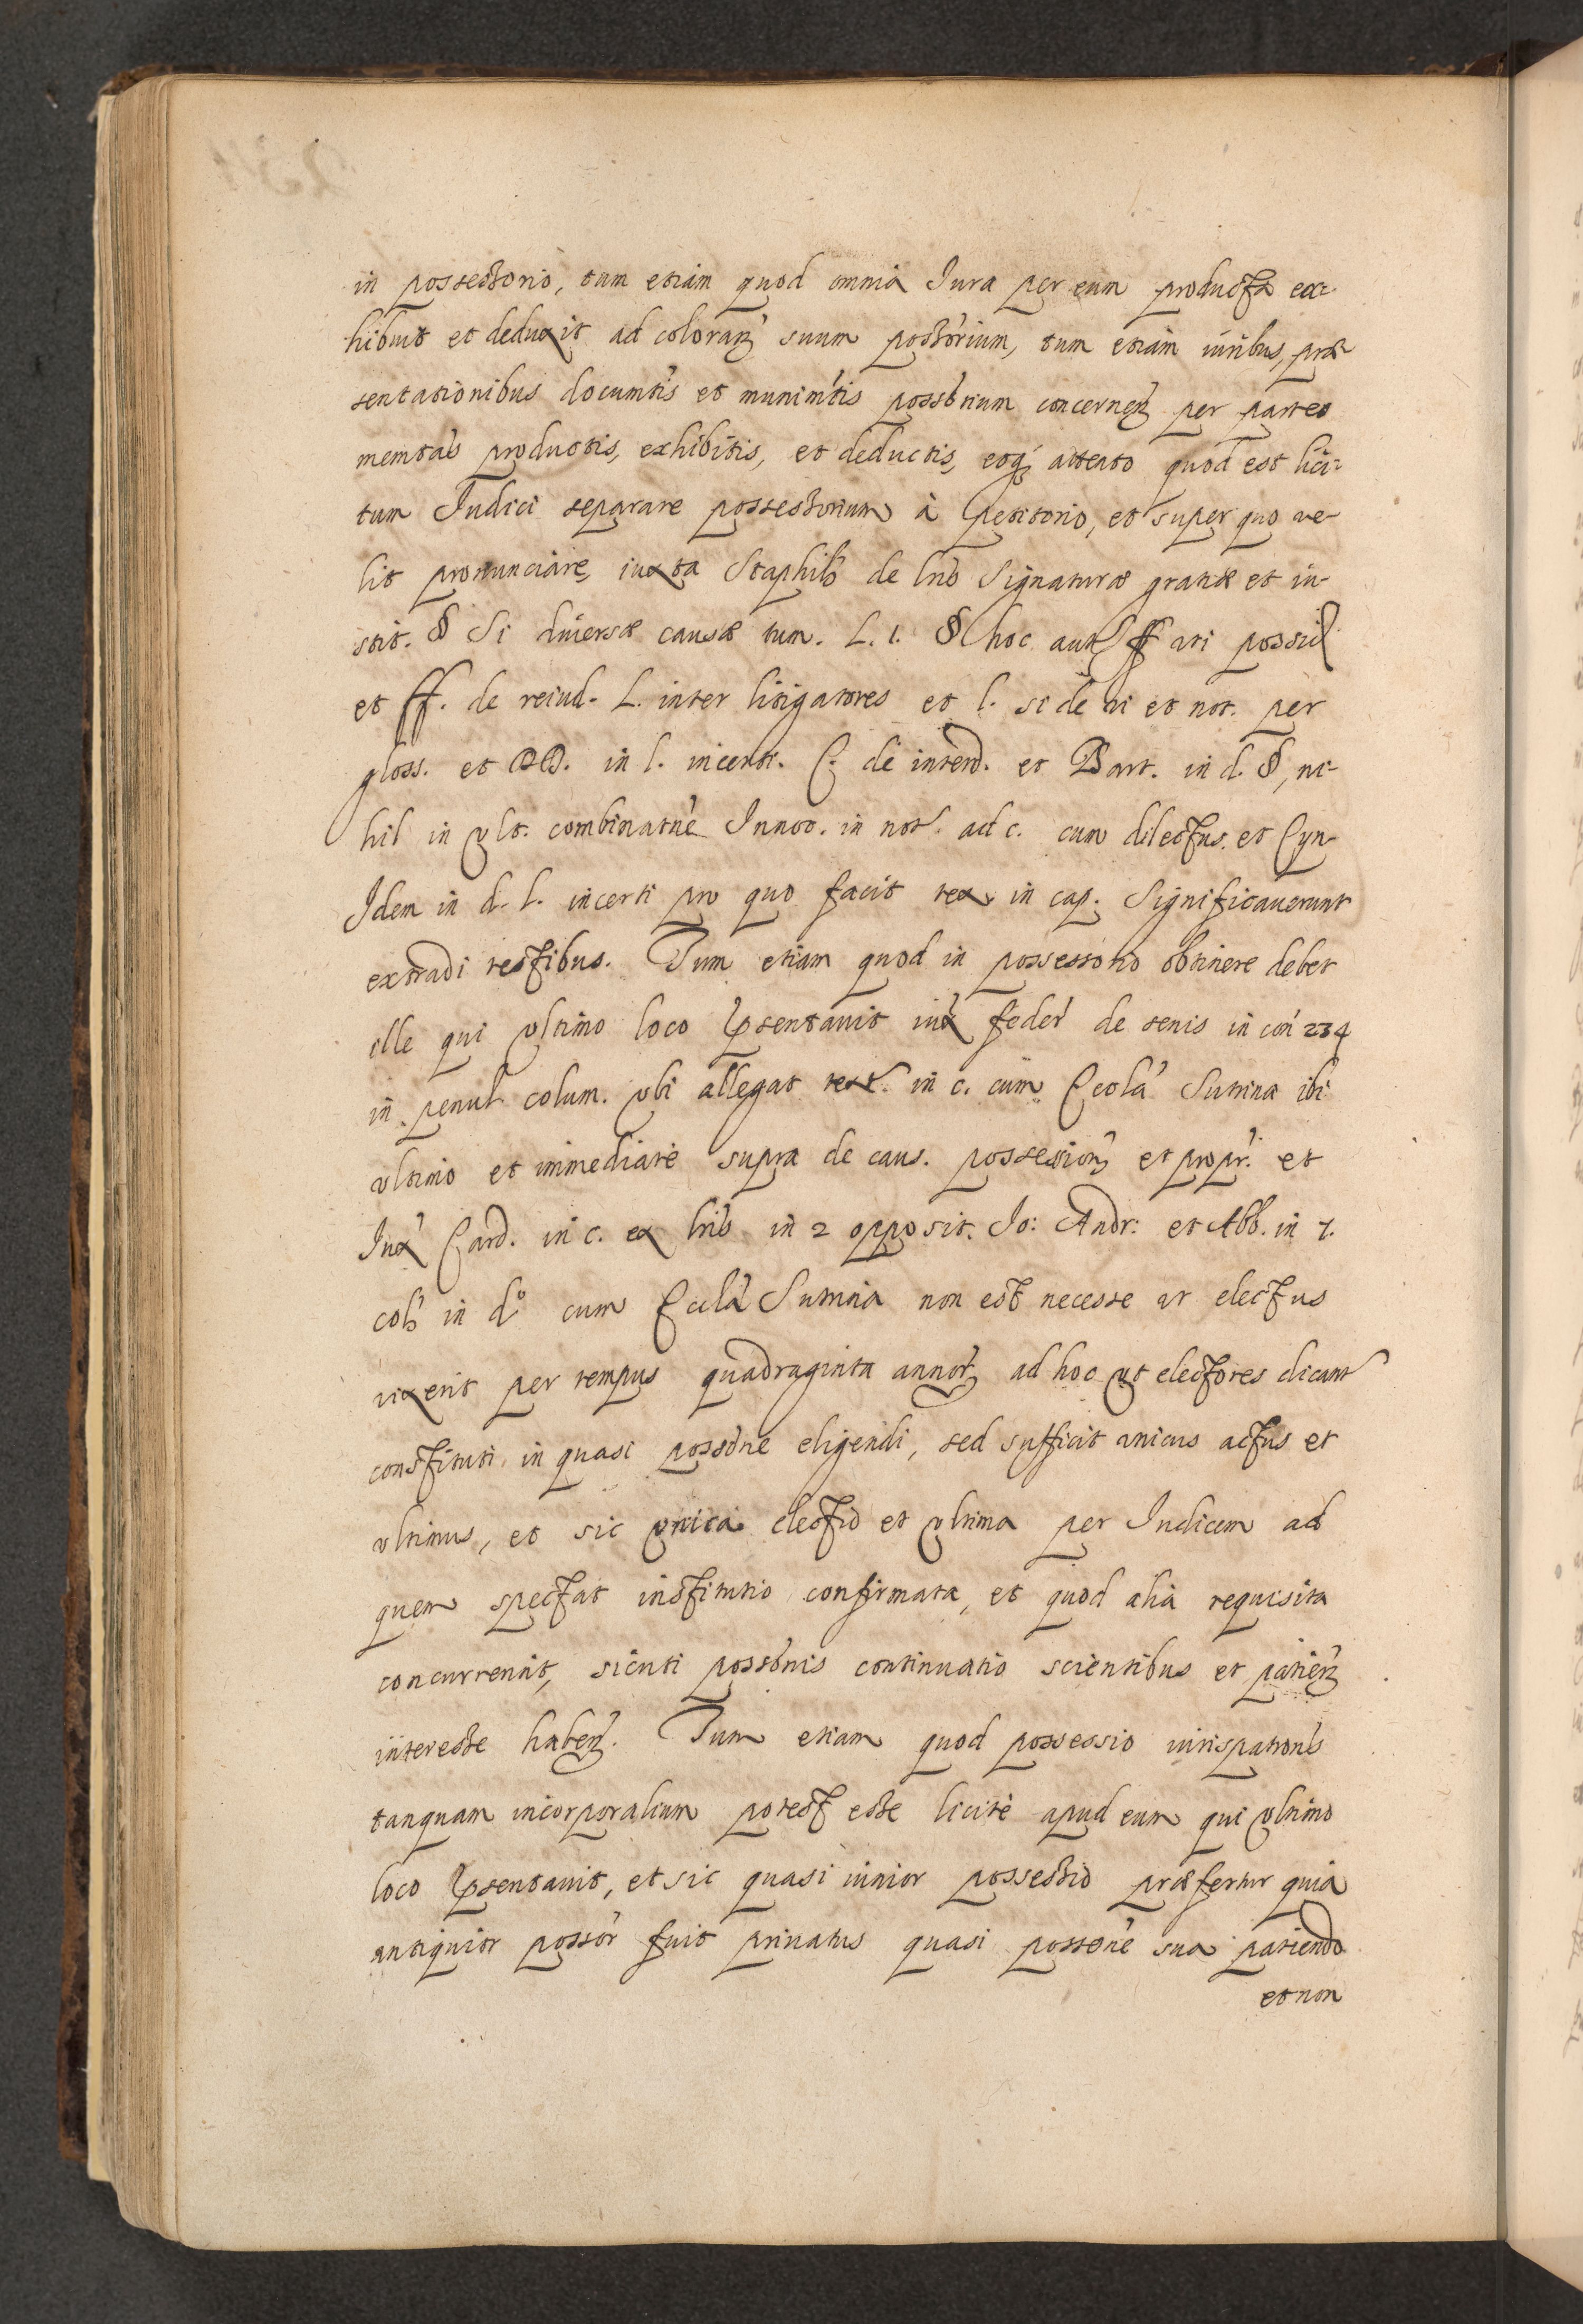 in possessorio, tum etiam quod omnia Jura per eum producta ex-
hibuit et deduxit ad coloran' suum possorium, tum etiam iuribus, præ-
sentationibus documtis et munimtis possorium concernen per partes
memtas productis, exhibitis, et deductis, eoq́ attento quod est lici-
tum Judici separare possessorium à petitorio, et super quo ve-
lit pronunciare, iuxta Staphil' de lris Signaturæ gratiæ et iu-
stit. § Si diversæ causæ tum. L. 1. § hoc aut ff uti possid
et ff. de reiud. L. inter litigatores et l. si de vi et not. per
gloss. et DD. in l. incerti. C. de interd. et Bart. in d. §, ni-
hil in ult. combinatne Innoc. in not. ad c. cum dilectus. et Cyn
Idem in d. l. incerti pro quo facit tex. in cap. Significaverunt
extradi testibus. Tum etiam quod in possessorio obtinere debet
ille qui ultimo loco psentavit iux feder' de senis in con' 234
in penult colum. ubi allegat text. in c. cum Ecclã Sutrina ibi
ultimo et immediate supra de caus. possession' et propr'. et
Iux' Card. in c. ex lris in 2 opposit. Io: Andr: et Abb. in 7.
col' in d.º cum Ecclã Sutrina non est necesse ut electus
vixerit per tempus quadraginta annor' ad hoc ut electores dicant
constituti in quasi possone eligendi, sed sufficit unicus actus et
ultimus, et sic unica electio et ultima per Iudicem ad
quem spectat institutio confirmata, et quod alia requisita
concurrerint, sicuti possonis continuatio scientibus et patien'
interesse haben'. Tum etiam quod possessio iurispatronus
tanquam incorporalium potest esse licite apud eum qui ultimo
loco psentavit, et sic quasi iunior possessio præfertur quia
antiquior possor fuit privatus quasi possone sua patiendo
et non